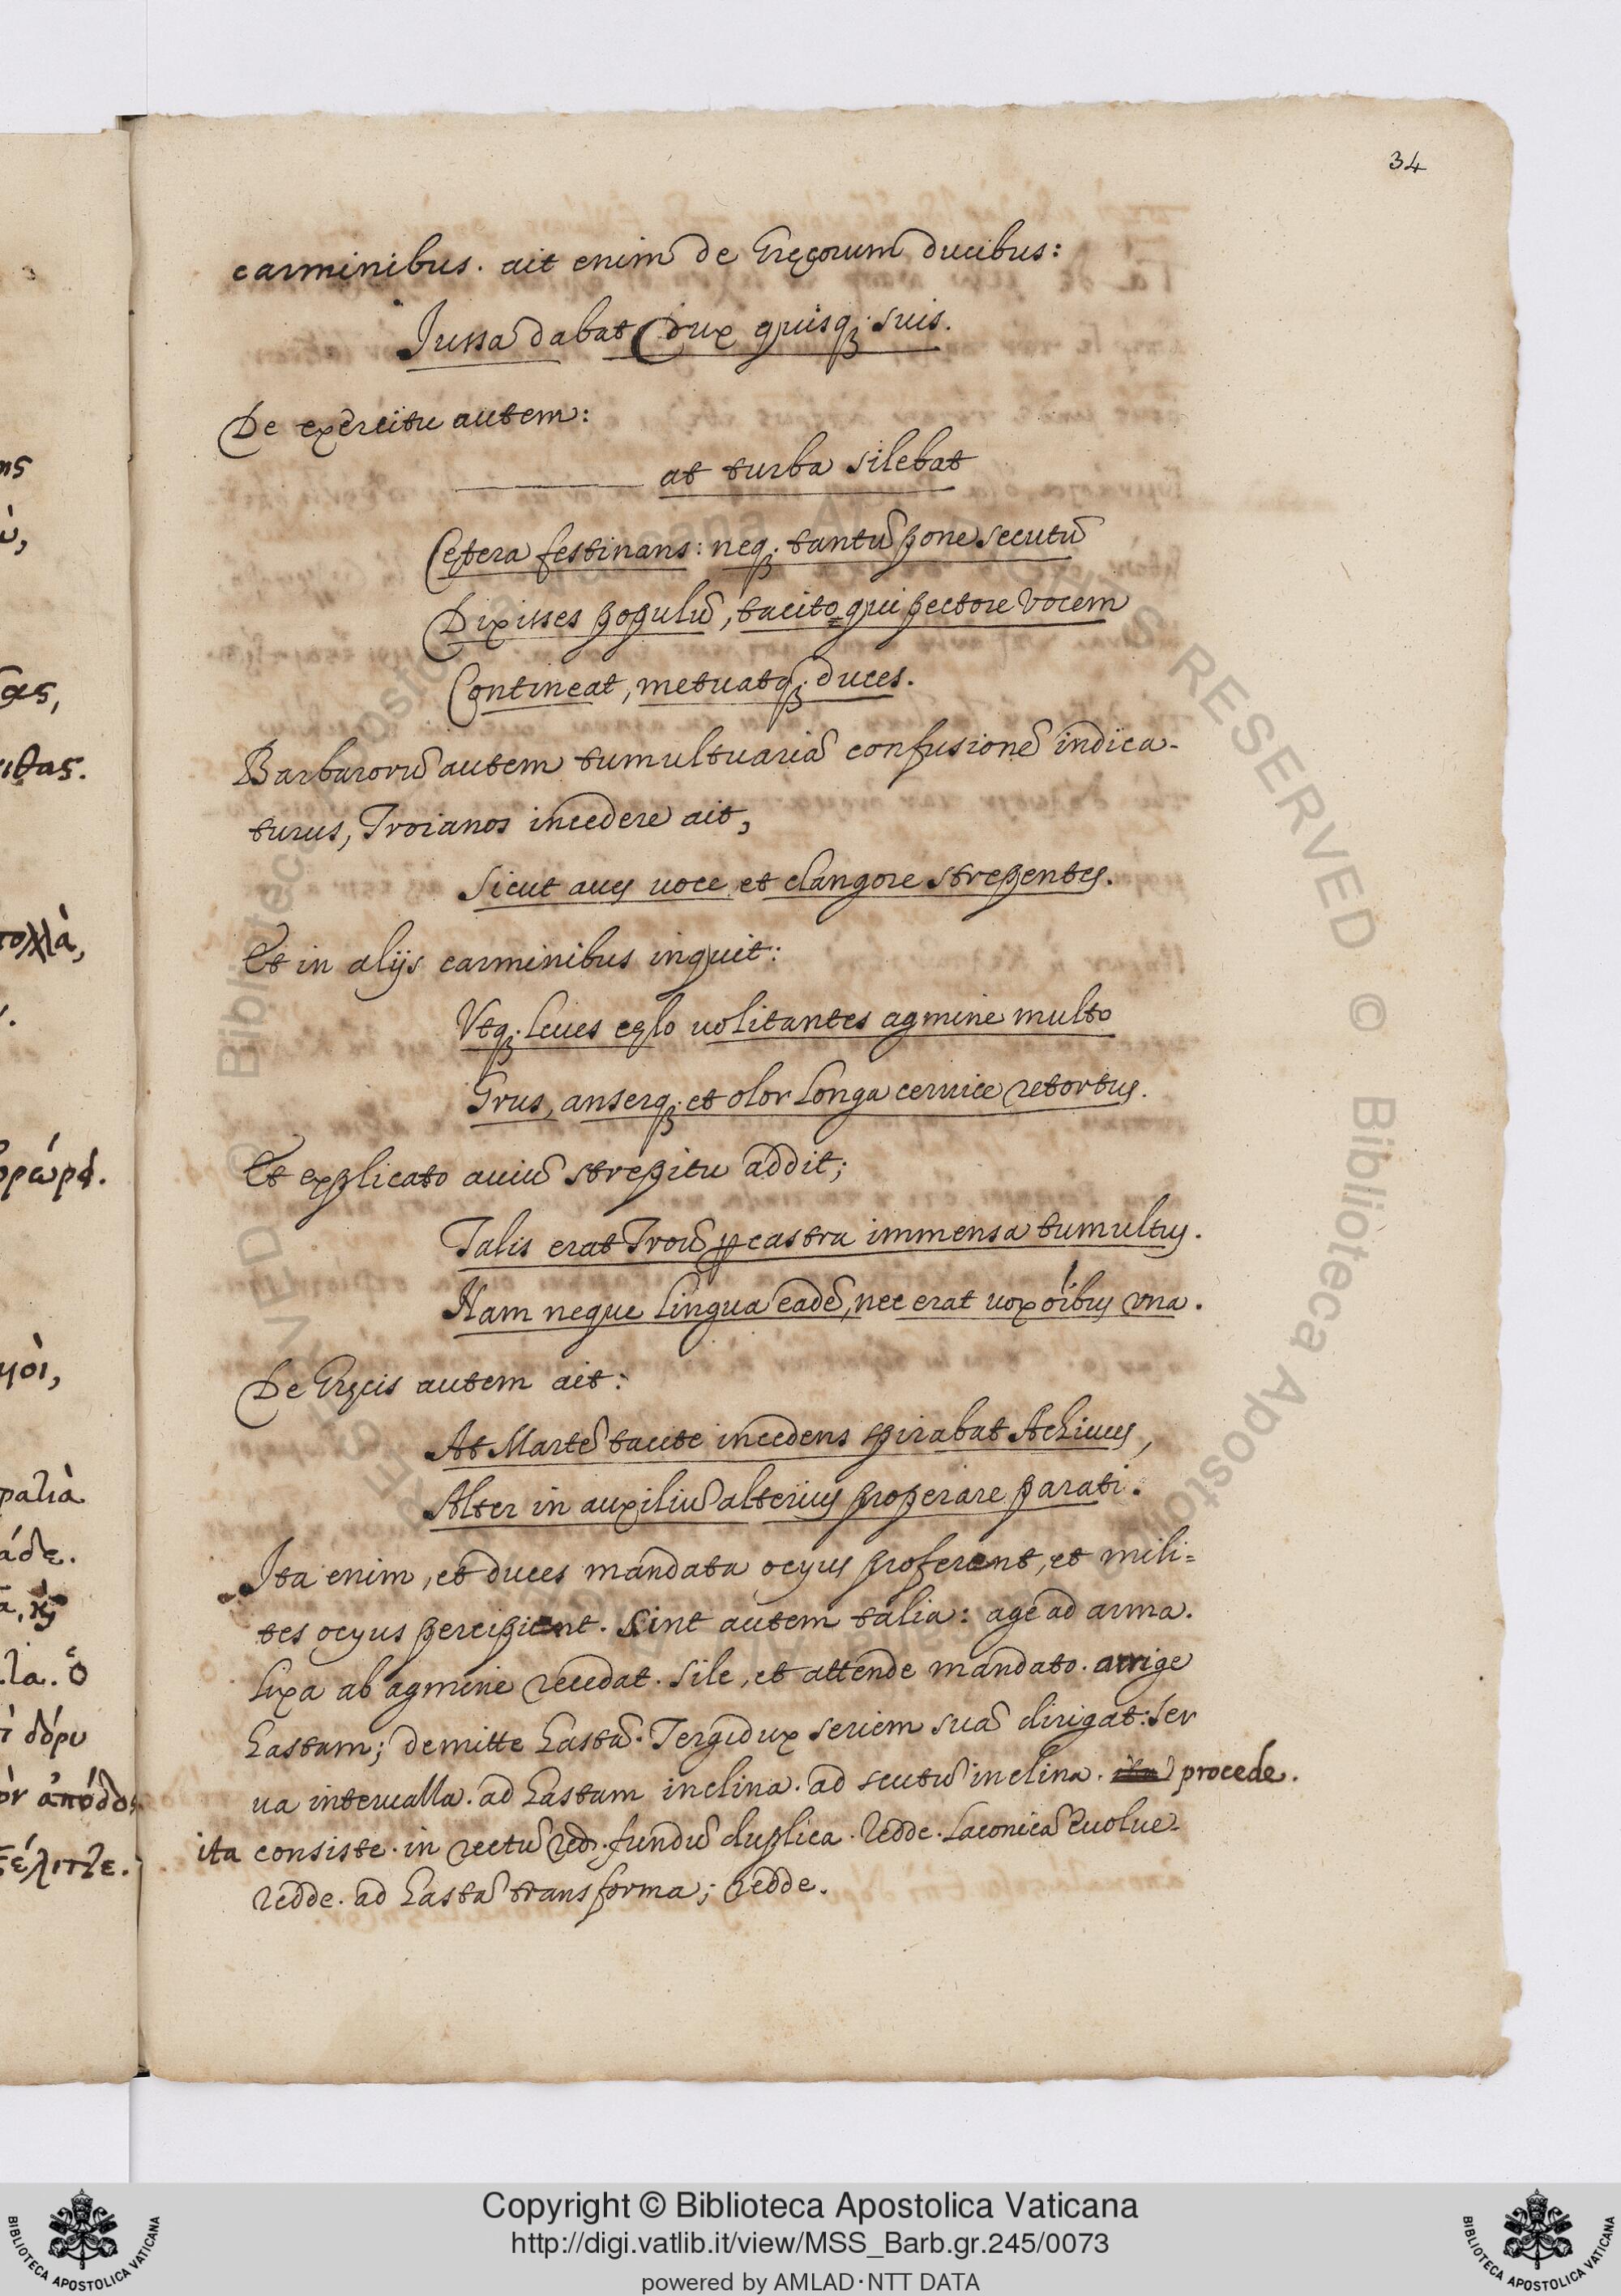 34
carminibus. ait enim de Gręcorum ducibus:
Jussa dabat Dux quisq; suis.
De exercitu autem:
at turba silebat
Cętera festinans: neq; tantũ pone secutũ
Dixisses populũ, tacito qui pectore vocem
Contineat, metuatq; duces.
Barbarorũ autem tumultuariã confusionẽ indica-
turus, Troianos incedere ait,
Sicut aues uoce et clangore strepentes.
Et in alijs carminibus inquit:
Vtq; leues cęlo uolitantes agmine multo
Grus, anserq; et olor longa ceruice retortus.
Et explicato auiũ strepitu addit;
Talis erat Troũ ꝑ castra immensa tumultus.
Nam neque lingua eadẽ, nec erat uox oĩbus vna.
De Gręcis autem ait:
At Martẽ tacite incedens spirabat Achiuus,
Alter in auxiliũ alterius properare parati.
Ita enim, et duces mandata ocyus proferent, et mili=
tes ocyus percipient. Sint autem talia: age ad arma.
Lixa ab agmine recedat. Sile, et attende mandato. arrige
hastam; demitte hastã. Tergidux seriem suã dirigat: ser
ua interualla. ad hastam inclina. ad scutũ inclina. procede.
ita consiste. in rectũ red. fundũ duplica. Redde. Laconicã Euolue.
Redde. ad hastã transforma; redde.
ης
ὺ,
ας,
ιθας.
πολλὰ,
ορώρϩ.
μοὶ,
ρατιὰ
άδε.
ὁ
δόρυ
ὸν ἀπόδος
ἐξέλιττε.
© Biblioteca Apostolica Vaticana
RIGHTS RESERVED © Biblioteca Apostolica
BIBLIOTECA APOSTOLICA VATICANA
Copyright © Biblioteca Apostolica Vaticana
http://digi.vatlib.it/view/MSS_Barb.gr.245/0073
powered by AMLAD·NTT DATA
BIBLIOTECA APOSTOLICA VATICANA